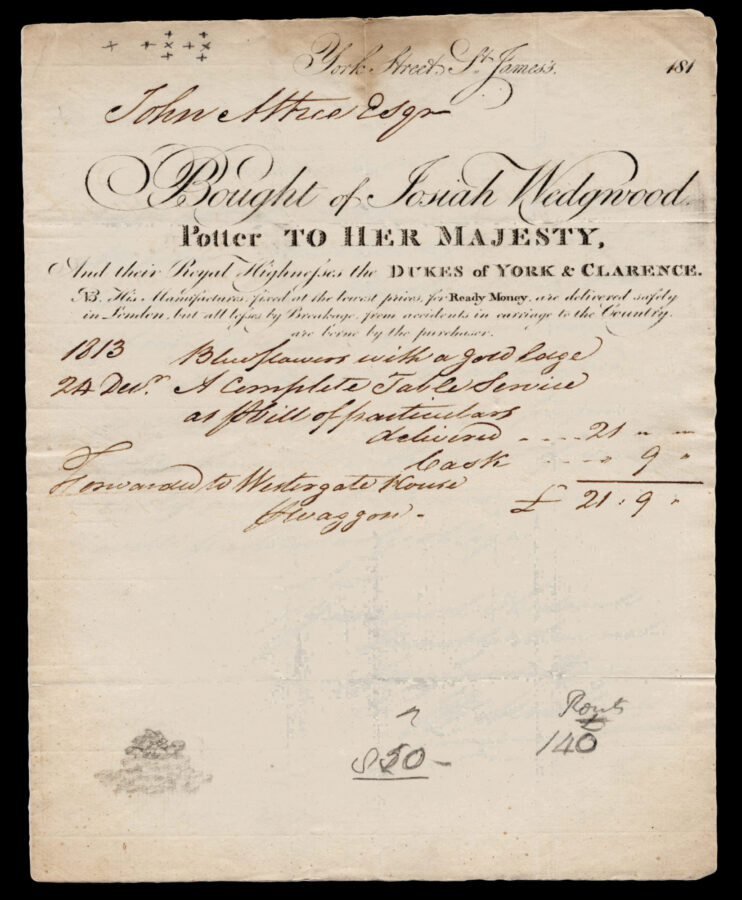 York Street, St. James's. 181
John Attree Esqr
Bought of Josiah Wedgwood.
Potter TO HER MAJESTY,
And their Royal Highnesses the DUKES of YORK & CLARENCE.
NB. His Manufactures, fixed at the lowest prices, for Ready Money, are delivered safely
in London, but all losses by Breakage, from accidents in carriage to the Country,
are borne by the purchaser.
1813 Blue flowers with a gold edge
24 Decr. A Complete Table Service
as Bill of particulars
delivered - - - - 21 " "
Cask - - - " 9 "
Forwarded to Westergate House
waggon -
£ 21 " 9 "
850 -
140